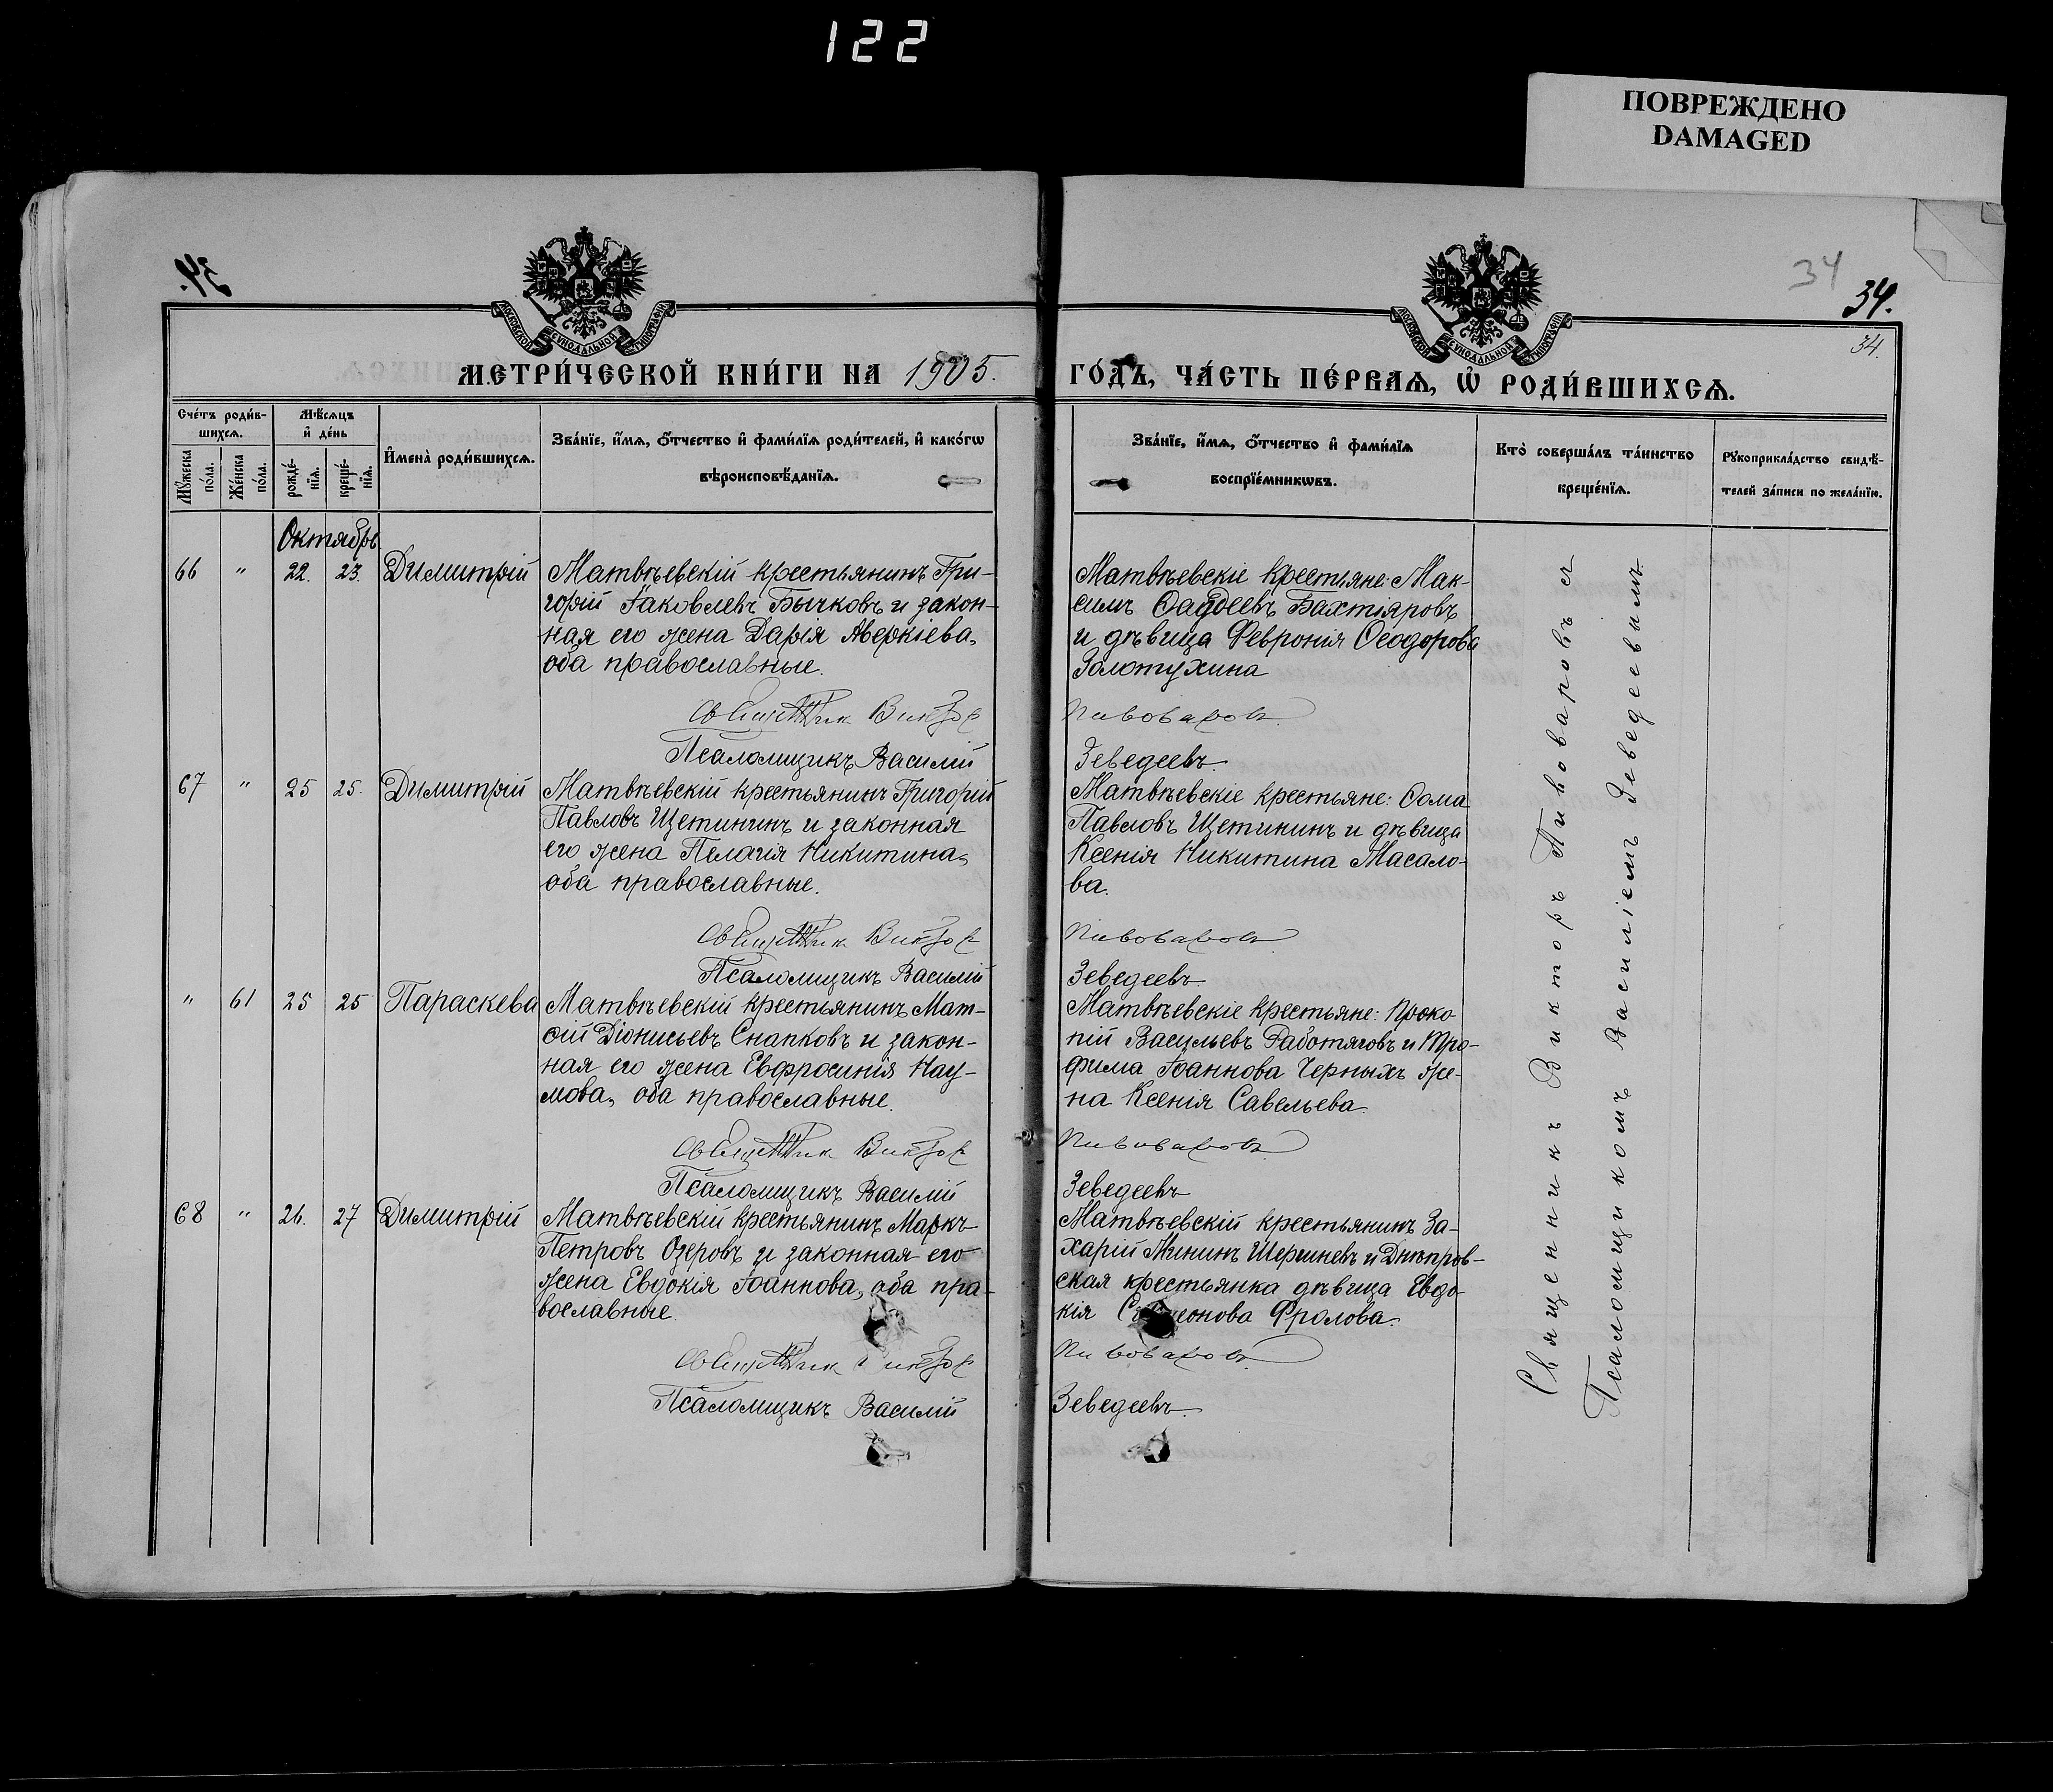 122
ПОВРЕЖДЕНО
DAMAGED
34
34.
34.
МОСКОВСКОЙ СѴНОДАЛЬНОЙ ТИПОГРАФІИ
МОСКОВСКОЙ СѴНОДАЛЬНОЙ ТИПОГРАФІИ
МЕТРИ́ЧЕСКОЙ КНИ́ГИ НА 1905.
ГО́ДЪ, ЧА́СТЬ ПЕ́РВАѦ, Ѡ҆ РОДИ́ВШИХСѦ.
Сче́тъ роди́в-
шихсѧ.
Мѣ́сѧцъ
и҆ де́нь
Мꙋ́жеска
по́ла.
Же́нска
по́ла.
рожде́-
нїѧ.
креще́-
нїѧ.
И҆мена̀ роди́вшихсѧ.
Зва́нїе, и҆́мѧ, ѻ҆́тчество и҆ фами́лїѧ роди́телей, и҆ како́гѡ
вѣроисповѣ́данїѧ.
Зва́нїе, и҆́мѧ, ѻ҆́тчество и҆ фами́лїѧ
воспрїе́мникѡвъ.
Кто̀ соверша́лъ та́инство
креще́нїѧ.
Рꙋкоприкла́дство свидѣ́-
телей за́писи по жела́нїю.
Октябрь
66 " 22. 23. Димитрій
Матвѣевскій крестьянинъ Гри-
горій Іаковлевъ Бычковъ и закон-
ная его жена Дарія Аверкіева,
оба православные.
Священник Виктор
Псаломщикъ Василій
Матвѣевскіе крестьяне: Мак-
симъ Ѳаддеевъ Бахтіяровъ
и дѣвица Февронія Ѳеодорова
Золотухина
Пивоваровъ
Зеведеевъ.
67 " 25 25. Димитрій
Матвѣевскій крестьянинъ Григорій
Павловъ Щетининъ и законная
его жена Пелагія Никитина,
оба православные.
Священник Виктор
Псаломщикъ Василій
Матвѣевскіе крестьяне: Ѳома
Павловъ Щетининъ и дѣвица
Ксенія Никитина Масало-
ва.
Пивоваровъ
Зеведеевъ.
" 61 25 25 Параскева
Матвѣевскій крестьянинъ Мат-
ѳій Діонисьевъ Снапковъ и закон-
ная его жена Евфросинія Нау-
мова, оба православные.
Священник Виктор
Псаломщикъ Василій
Матвѣевскіе крестьяне: Проко
пій Васильевъ Работяговъ и Тро-
фима Іоаннова Черныхъ же-
на Ксенія Савельева.
Пивоваровъ
Зеведеевъ
68 " 26. 27 Димитрій
Матвѣевскій крестьянинъ Маркъ
Петровъ Озеровъ и законная его
жена Евдокія Іоаннова, оба пра-
вославные.
Священник Виктор
Псаломщикъ Василій
Матвѣевскій крестьянинъ За-
харій Мининъ Шершневъ и Днѣпров-
ская крестьянка дѣвица Евдо-
кія Фролова.
Пивоваровъ
Зеведеевъ.
Священникъ Викторъ Пивоваровъ съ
Псаломщикомъ Василіемъ Зеведеевымъ